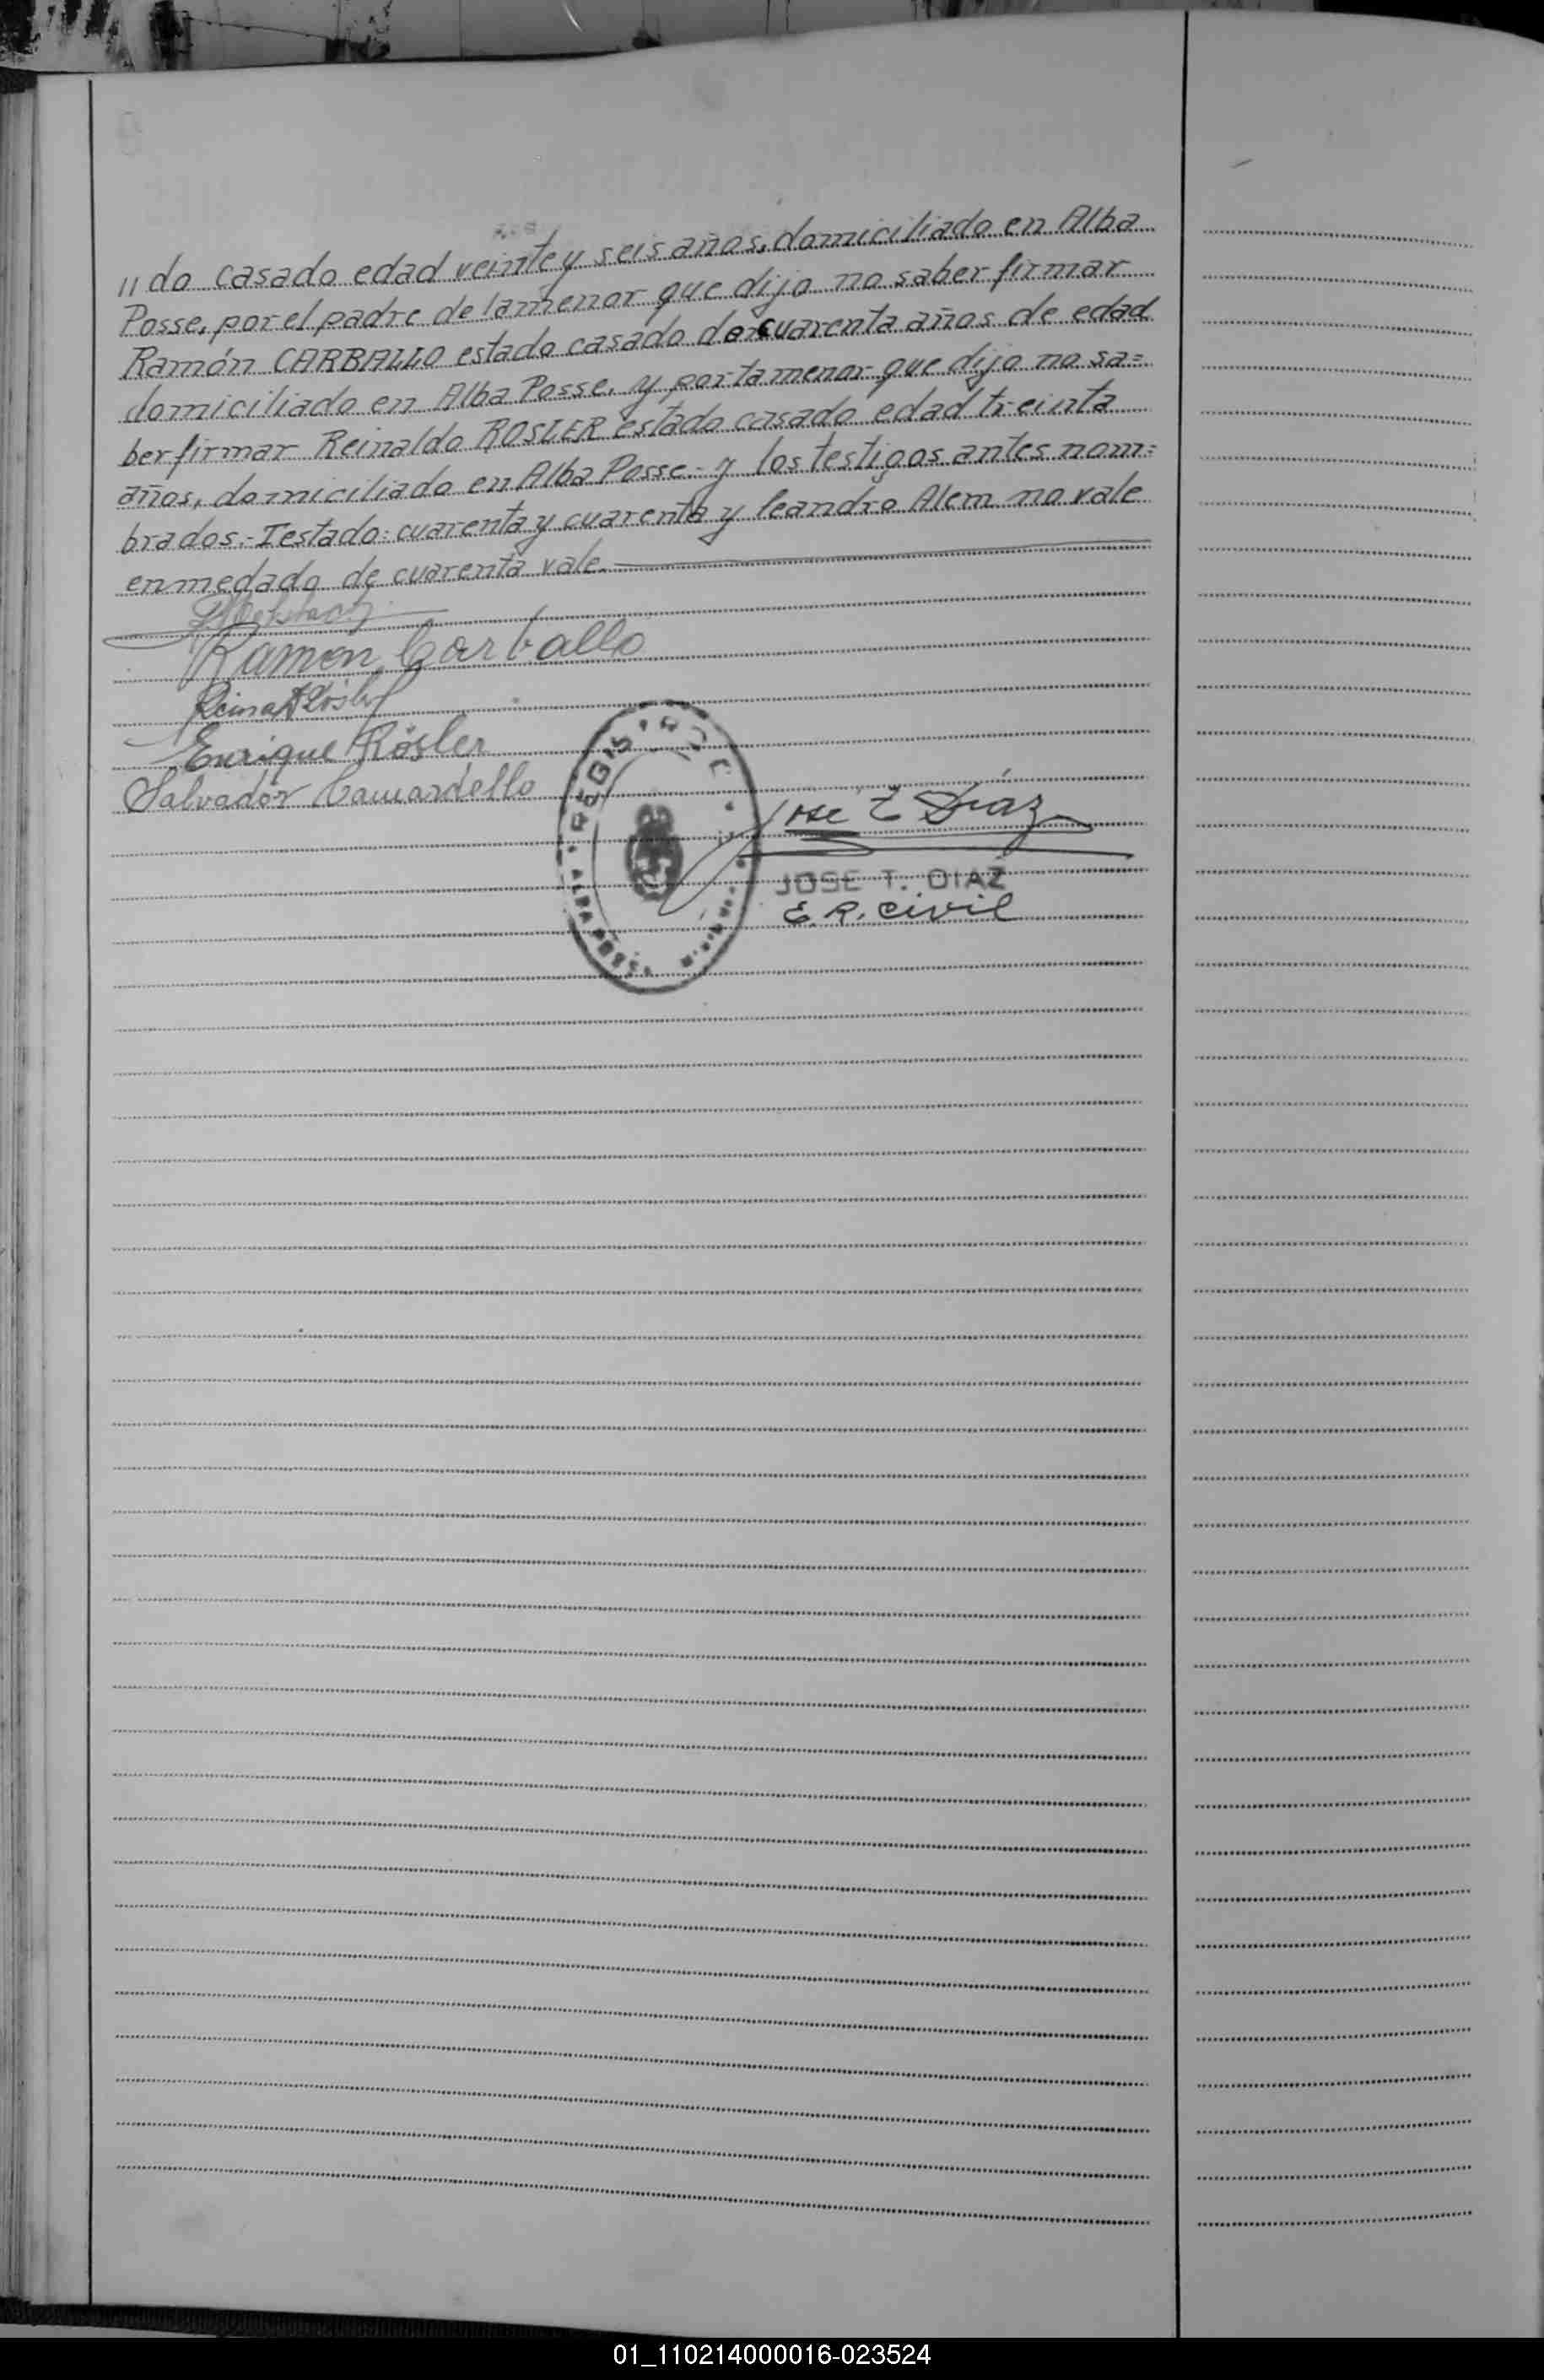 "do casado edad veinte y seis años, domiciliado en Alba
Posse, por el padre de la menor que dijo no saber firmar
Ramón CARBALLO estado casado de cuarenta años de edad
domiciliado en Alba Posse, y por la menor que dijo no sa=
ber firmar Reinaldo ROSLER estado casado edad treinta
años, domiciliado en Alba Posse.- y los testigos antes nom=
brados.- Testado: cuarenta y cuarenta y leandro Alem no vale
enmedado de cuarenta vale.
Ramon Carballo
Reinal Rösler
Enrique Rösler
Salvador Camardello
REGISTRO C
ALBA POSSE
Jose T Diaz
JOSE T. DIAZ
E. R. civil
01_110214000016-023524